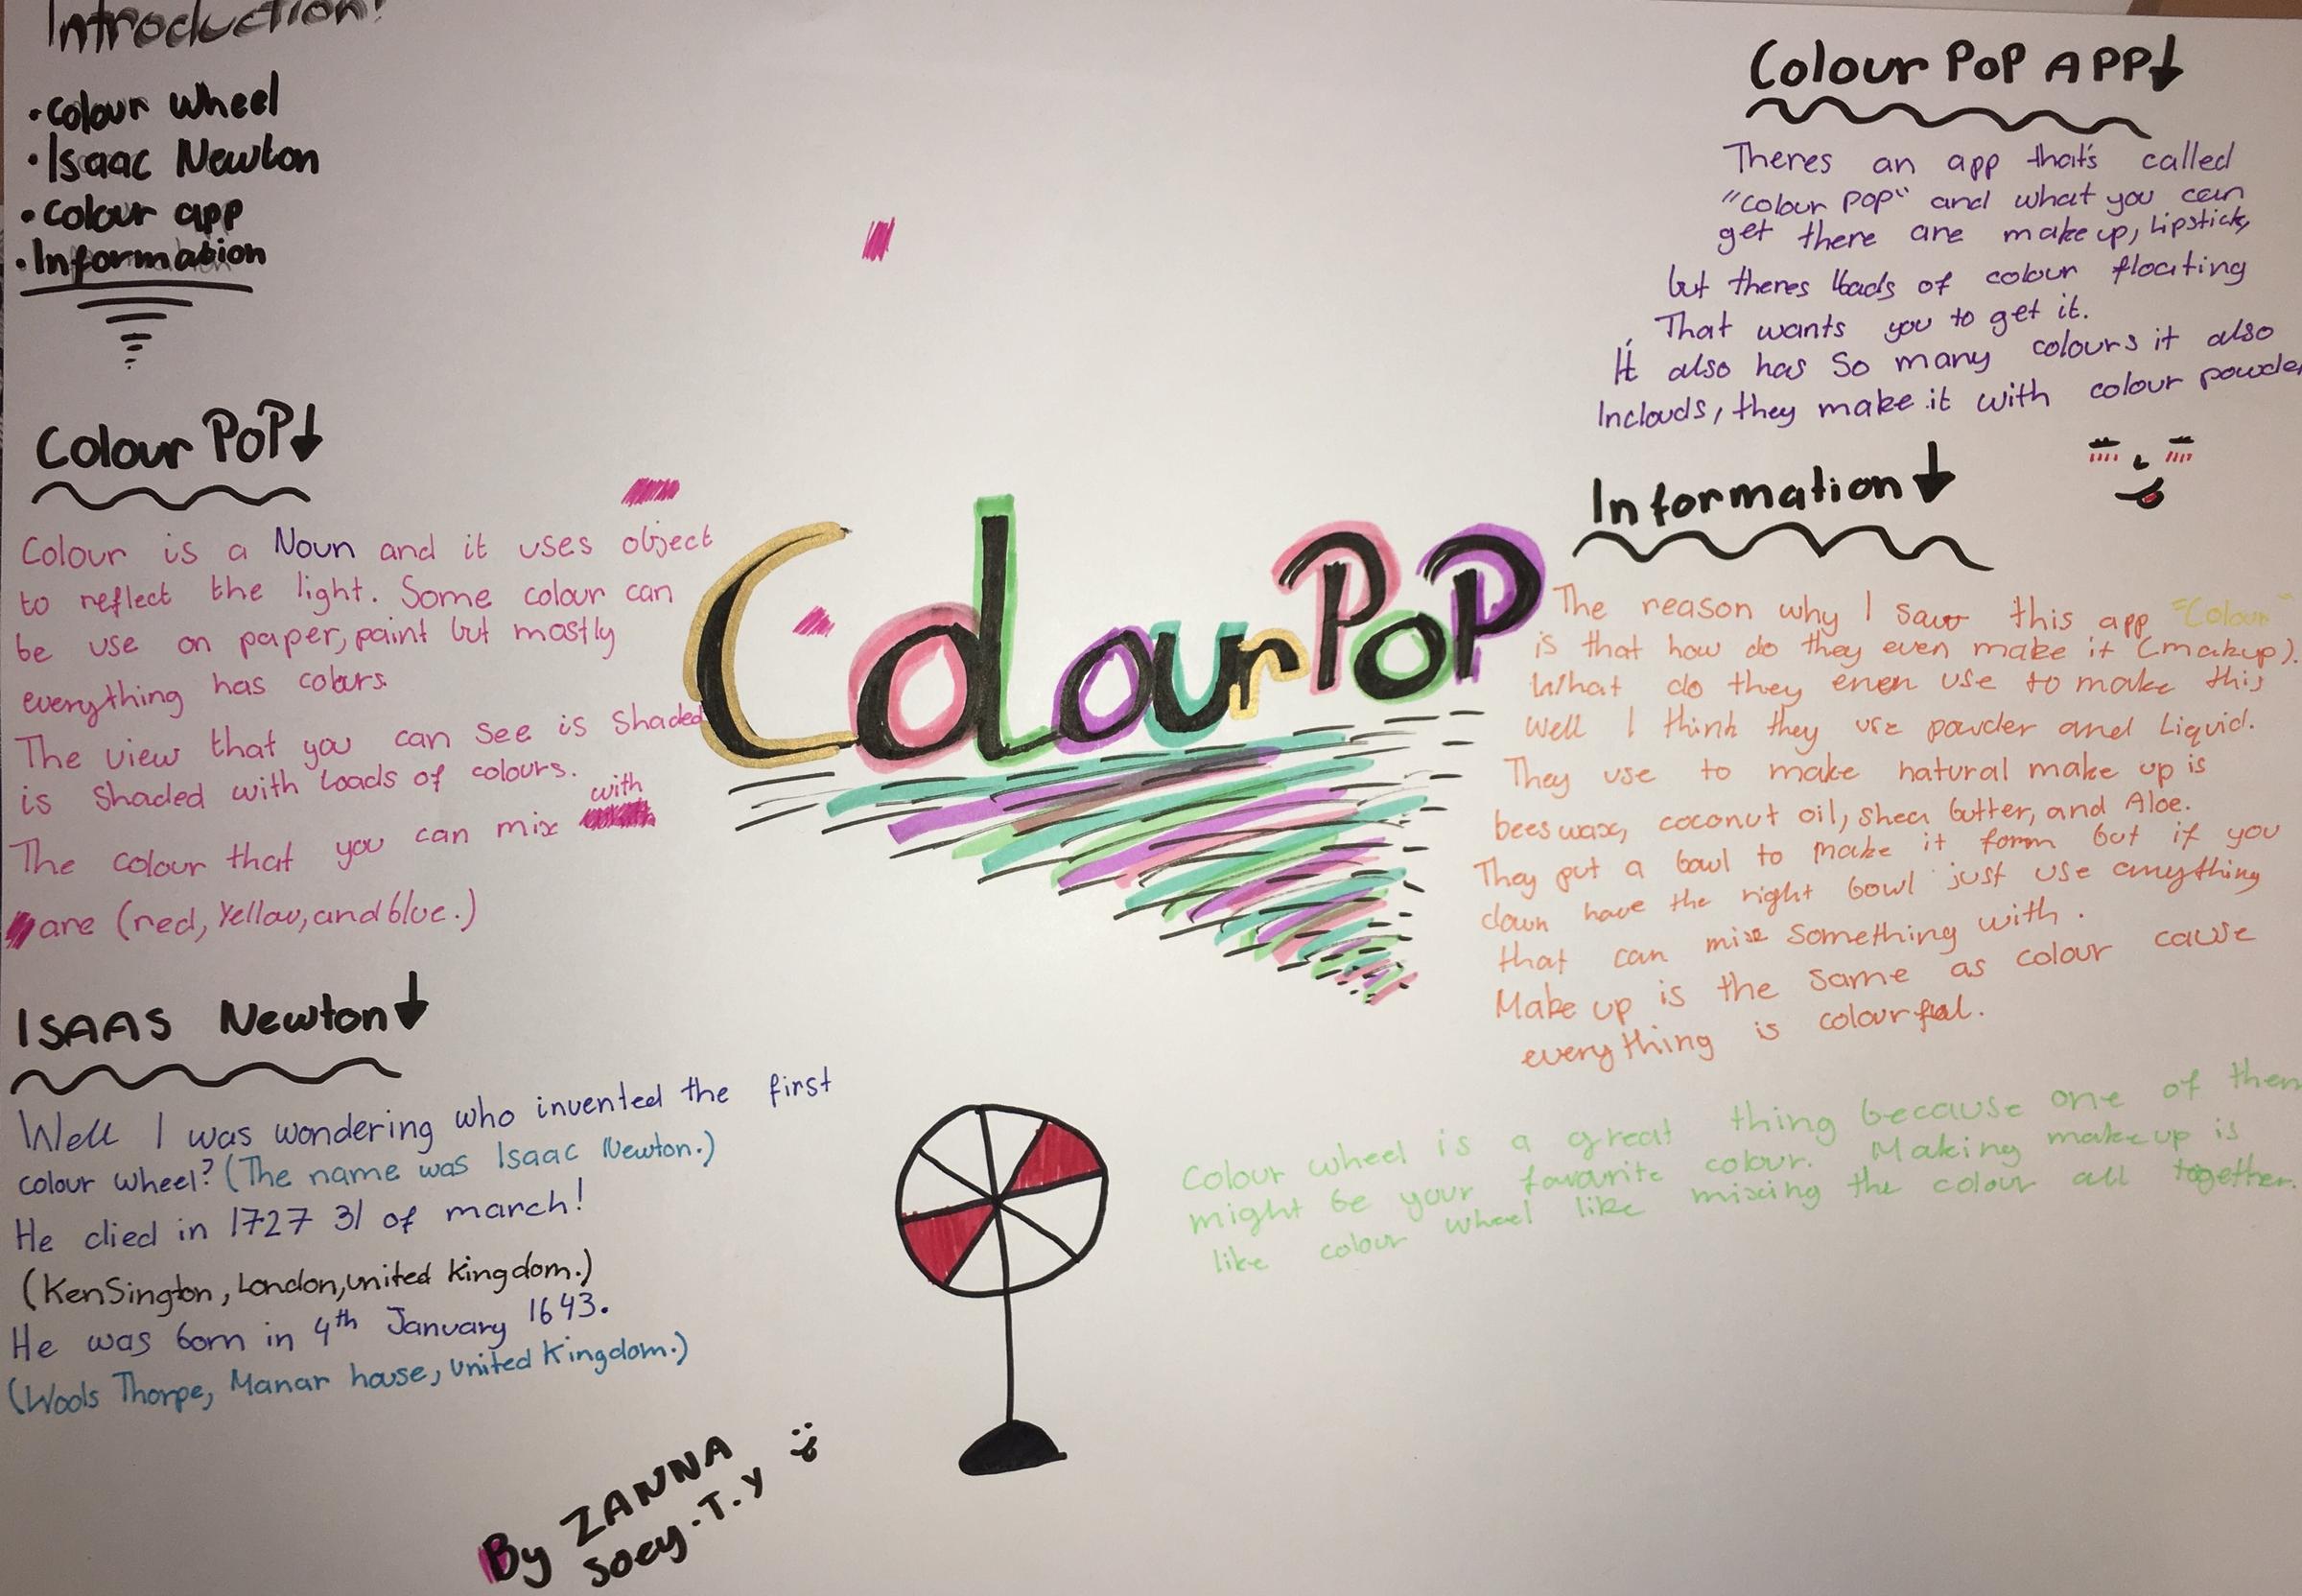 Introduction!
• Colour wheel
• Isaac Newton
• Colour app
• Information
Colour POP
Colour is a Noun and it uses object
to reflect the light. Some colour can
be use on paper, paint but mostly
everything has colours.
The view that you can see is shaded
is shaded with loads of colours.
The colour that you can mix with
are (red, Yellow, and blue.)
ISAAS Newton
Well I was wondering who invented the first
colour wheel? (The name was Isaac Newton.)
He died in 1727 31 of march!
(KenSington, London, united kingdom.)
He was born in 4th January 1643.
(Wools Thorpe, Manar house, united Kingdom.)
By ZANNA
Soey.T.y
ColourPoP
Colour POP APP
Theres an app that's called
"Colour POP" and what you can
get there are make up, Lipstick,
but theres loads of colour floating
That wants you to get it.
It also has So many colours it also
Inclouds, they make it with colour powder
Information
The reason why I saw this app "Colour"
is that how do they even make it (makup).
What do they even use to make this
Well I think they use powder and Liquid.
They use to make natural make up is
beeswax, coconut oil, shea butter, and Aloe.
They put a bowl to make it form but if you
down have the right bowl just use anything
that can mix something with.
Make up is the same as colour cause
everything is colourful.
Colour wheel is a great thing because one of them
might be your favourite colour. Making makeup is
like colour wheel like mixing the colour all together.